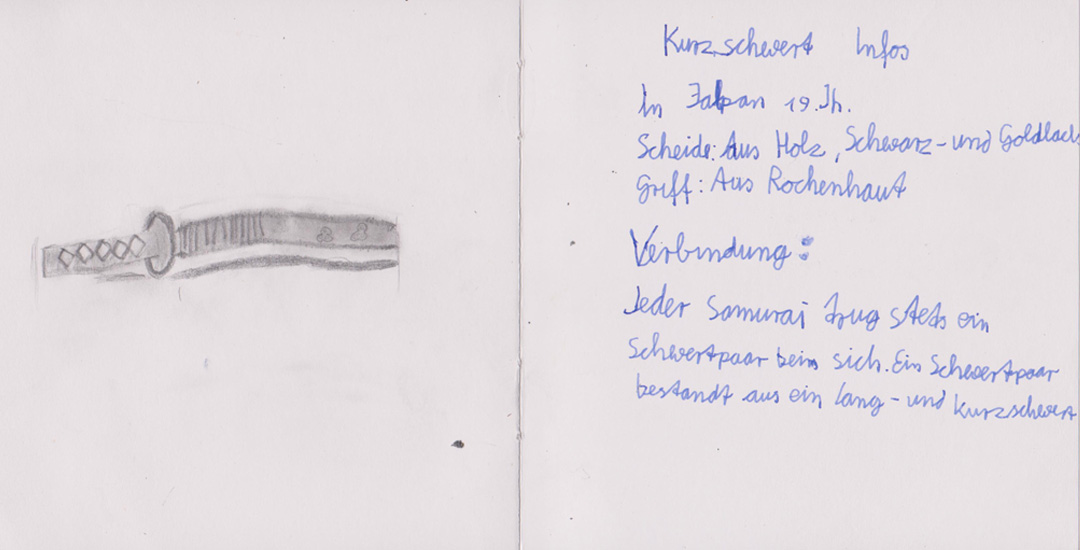 Kurzschwert Infos
In Japan 19.Jh.
Scheide: Aus Holz, Schwarz- und Goldlack
Griff: Aus Rochenhaut
Verbindung:
Jeder Samurai trug stets ein
Schwertpaar beim sich. Ein Schwertpaar
bestandt aus ein Lang- und Kurzschwert